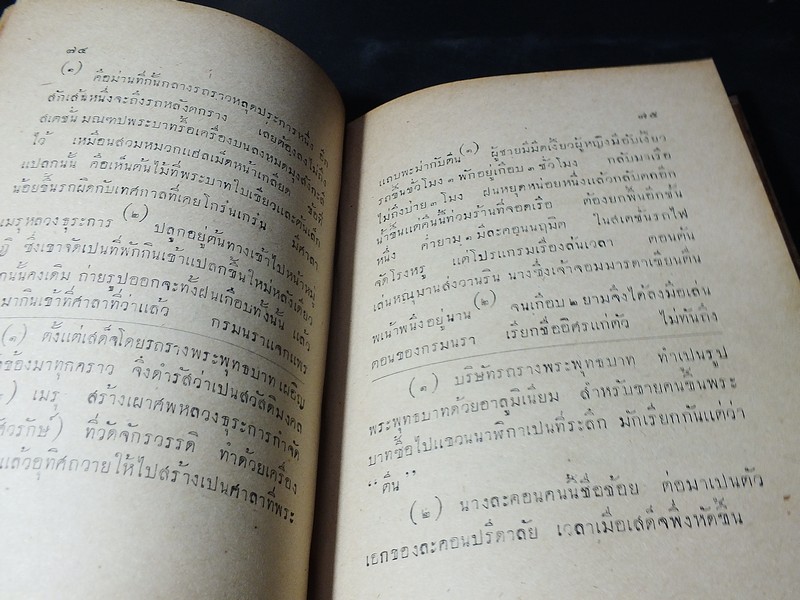 ๗๔
(๑) คือม่านที่กั้นกลางรถรางหลุดประการหนึ่ง อีก
สักเส้นหนึ่งจะถึงรถหลังตกราง เลยต้องลงไม่ถึง
สเตชั่น มณฑปพระบาทรื้อเครื่องบนลงหมดมุงสังกะสี
ไว้ เหมือนสวมหมวกแฮลเม็ดหน้าเกลียด ข้อที่
แปลกนั้น คือเห็นต้นไม้ที่พระบาทใบเขียวและต้นเล็ก
น้อยขึ้นรกผิดกับเทศกาลที่เคยโกร๋นเกร๋น มีศาลา
เมรุหลวงธุระการ (๒) ปลูกอยู่ต้นทางเข้าไปหน้าหมู่
ซึ่งเขาจัดเปนที่พักกินเข้าแปลกขึ้นใหม่หลังเดียว
นั้นคงเดิม ถ่ายรูปออกจะทั้งฝนเกือบทั้งนั้น แล้ว
มากินเข้าที่ศาลาที่ว่าแล้ว กรมนราแจกแพร
(๑) ตั้งแต่เสด็จโดยรถรางพระพุทธบาท เผอิญ
ข้องมาทุกคราว จึงดำรัสว่าเปนสวัสดิมงคล
) เมรุ สร้างเผาศพหลวงธุระการกำจัด
ศวรภักษ์) ที่วัดจักรวรรดิ ทำด้วยเครื่อง
แล้วอุทิศถวายให้ไปสร้างเปนศาลาที่พระ
๗๕
แถบพะม่ากับตื้น (๑) ผู้ชายมีมีดเงี้ยวผู้หญิงมีอับเงี้ยว
รถขึ้นชั่วโมง ๑ พักอยู่เกือบ ๓ ชั่วโมง กลับมาเรือ
ไม่ถึงบ่าย ๓ โมง ฝนหยุดหน่อยหนึ่งแล้วกลับตกอีก
น้ำขึ้นแต่คืนนี้ท่วมร้านที่จอดเรือ ต้องยกพื้นอีกชั้น
หนึ่ง ค่ำยาม ๑ มีละคอนนฤมิต ในสเตชั่นรถไฟ
จัดโรงหรู แต่โปรแกรมเรื่องล้นเวลา ตอนต้น
เล่นหณุมานส่งวานริน นางซึ่งเจ้าจอมมารดาเขียนตื่น
พเน้าพนึงอยู่นาน (๒) จนเกือบ ๒ ยามจึงได้ลงมือเล่น
ตอนของกรมนรา เรียกชื่ออิศรแก่ตัว ไม่ทันถึง
(๑) บริษัทรถรางพระพุทธบาท ทำเปนรูป
พระพุทธบาทด้วยอาลูมิเนียม สำหรับขายคนขึ้นพระ
บาทซื้อไปแขวนนาฬิกาเปนที่ระลึก มักเรียกกันแต่ว่า
“ ตื้น ”
(๒) นางละคอนคนนี้ชื่อช้อย ต่อมาเปนตัว
เอกของละคอนปรีดาลัย เวลาเมื่อเสด็จพึ่งหัดขึ้น